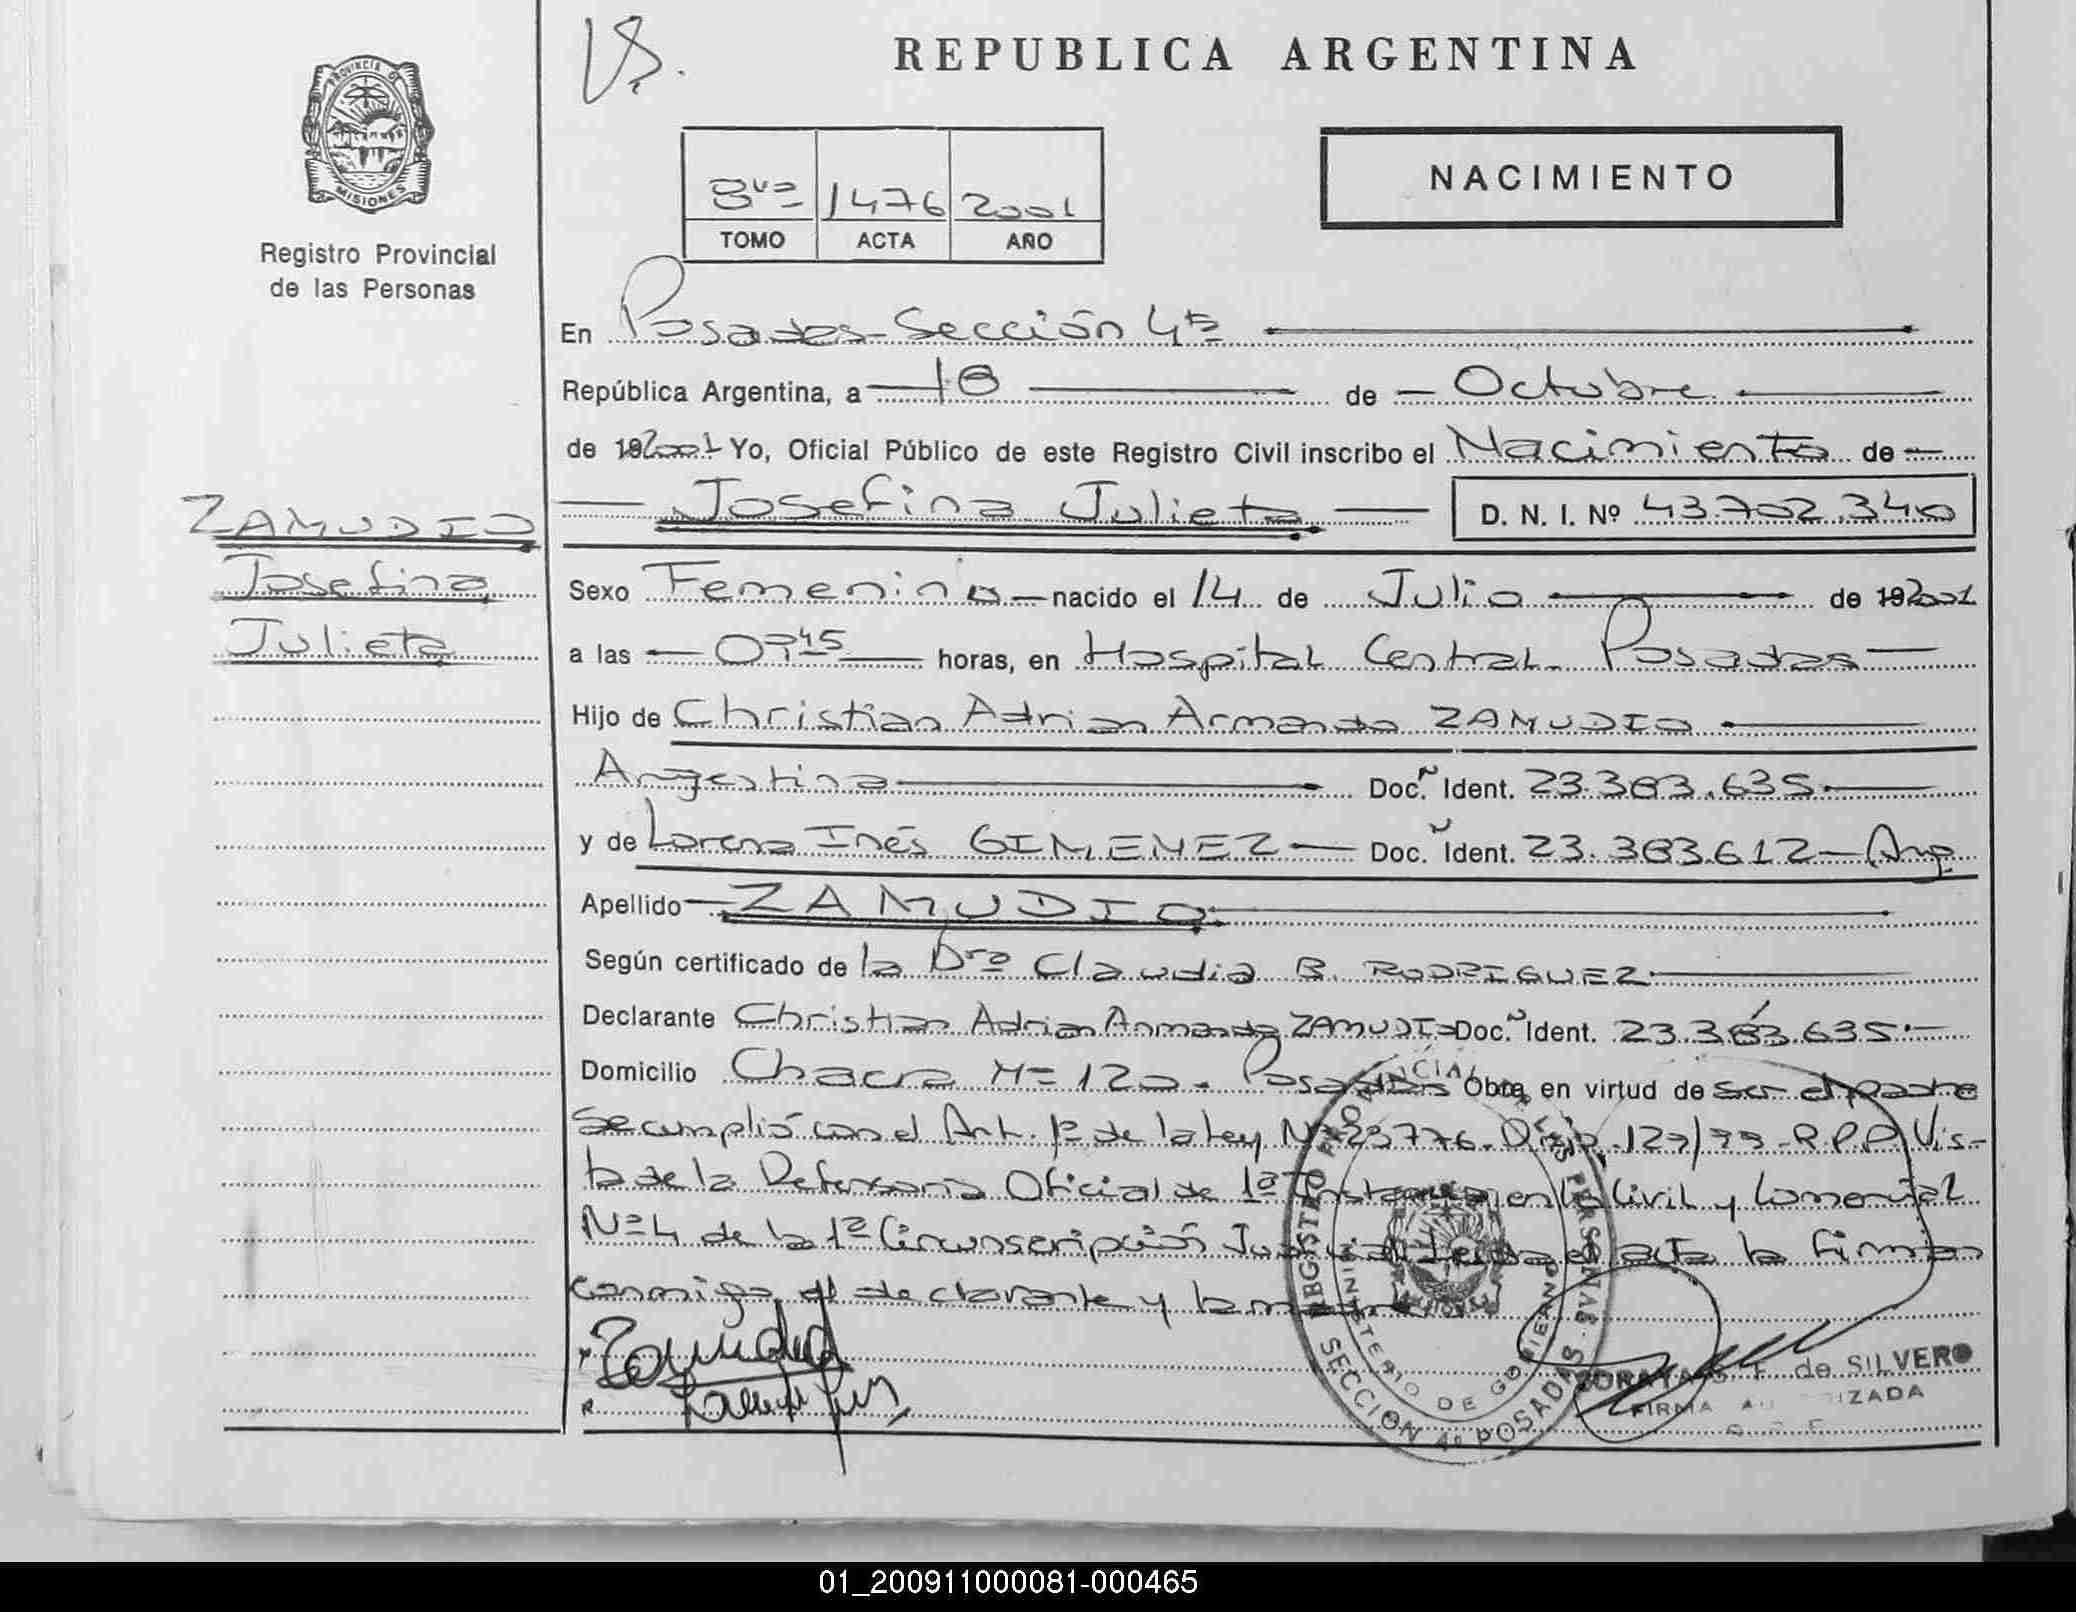 REPUBLICA ARGENTINA
PROVINCIA DE
MISIONES
Registro Provincial
de las Personas
8vo 1476 2001
TOMO ACTA AÑO
NACIMIENTO
En Posadas-Sección 4ta
República Argentina, a 18 de Octubre
de 192001 Yo, Oficial Público de este Registro Civil inscribo el Nacimiento de
Josefina Julieta D. N. I. Nº 43.702.340
ZAMUDIO
Josefina
Julieta
Sexo Femenino nacido el 14 de Julio de 192001
a las 07 45 horas, en Hospital Central Posadas
Hijo de Christian Adrian Armando ZAMUDIO
Argentina Doc. Ident. 23.383.635
y de Lorena Inés GIMENEZ Doc. Ident. 23.383.612 Arg
Apellido ZAMUDIO
Según certificado de la Dra Claudia B. RODRIGUEZ
Declarante Christian Adrian Armando ZAMUDIO Doc. Ident. 23.383.635
Domicilio Chacra Nº 120. Posadas Obra en virtud de ser el padre
Se cumplió con el Art. 1º de la ley Nº 23776. Disp. 127/99 R.P.P. Vis-
ta de la Defensoria Oficial de 1ª Instancia en lo Civil y Comercial
Nº 4 de la 1ª Circunscripción Judicial Leida el acta la firman
conmigo el declarante y la madre
Zamudio
REGISTRO PROVINCIAL DE LAS PERSONAS
MINISTERIO DE GOBIERNO
SECCION 4ª POSADAS
SORAYA F. de SILVERO
FIRMA AUTORIZADA
01_200911000081-000465